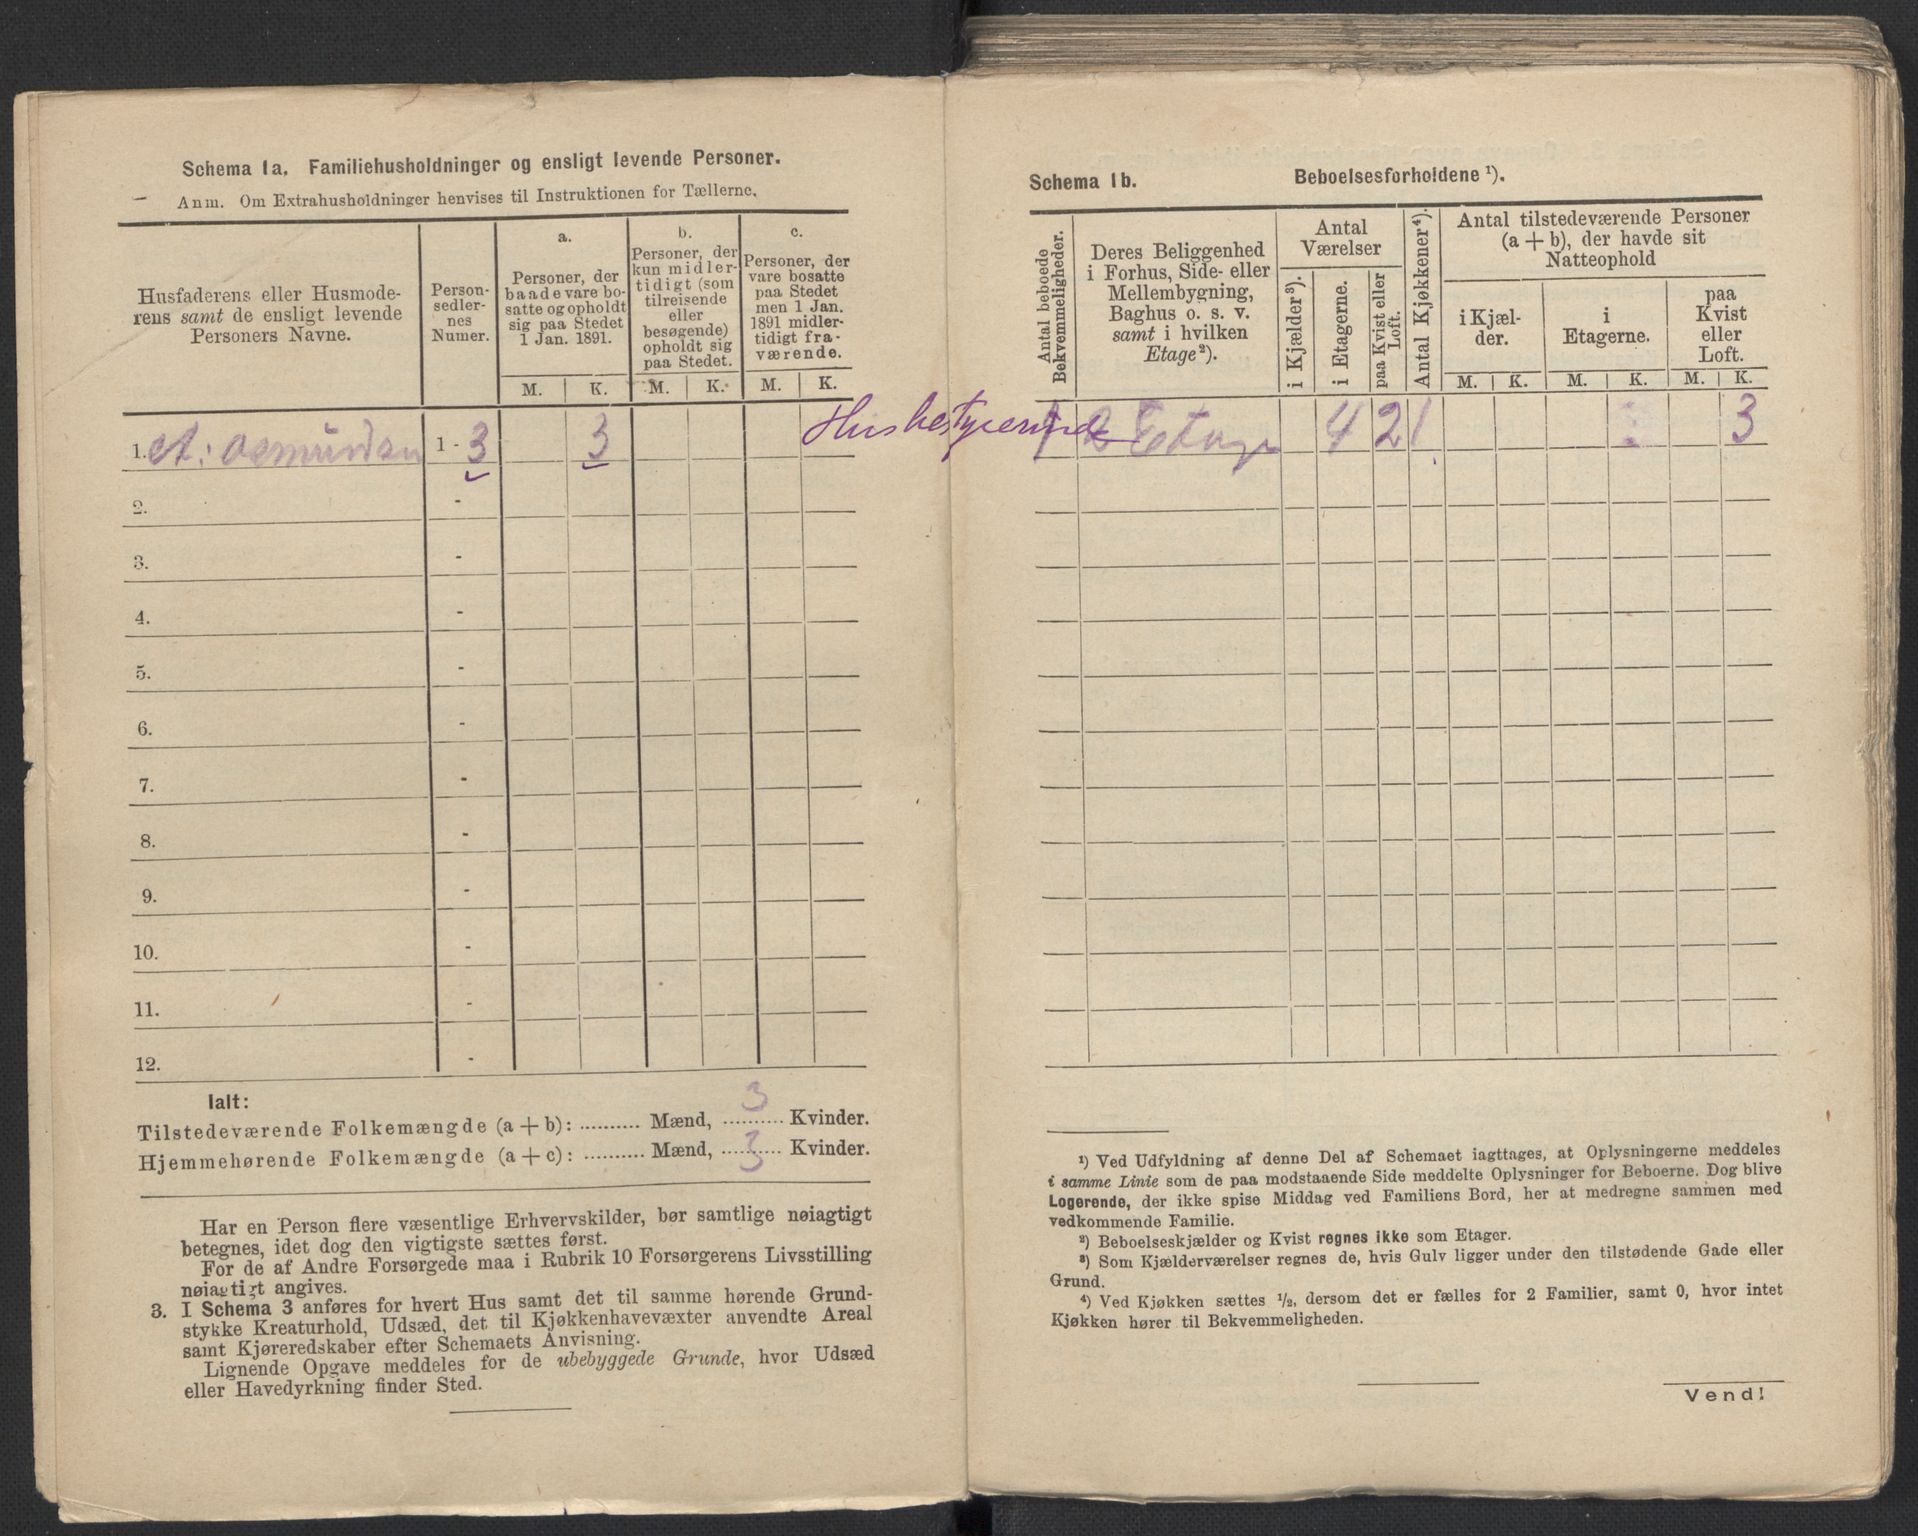 Schema 1a. Familiehusholdninger og ensligt levende Personer.
Anm. Om Extrahusholdninger henvises til Instruktionen for Tællerne.
Husfaderens eller Husmode-
rens samt de ensligt levende
Personers Navne.
Person-
sedler-
nes
Numer.
a.
Personer, der
baade vare bo-
satte og opholdt
sig paa Stedet
1 Jan. 1891.
b.
Personer, der
kun midler-
tidigt (som
tilreisende
eller
besøgende)
opholdt sig
paa Stedet.
c.
Personer, der
vare bosatte
paa Stedet
men 1 Jan.
1891 midler-
tidigt fra-
værende.
M. K. M. K. M. K.
1. A: Osmundsen 1 - 3 3 Husbestyrerinde
2. -
3. -
4. -
5. -
6. -
7. -
8. -
9. -
10. -
11. -
12. -
Ialt:
Tilstedeværende Folkemængde (a + b): .......... Mænd, 3 Kvinder.
Hjemmehørende Folkemængde (a + c): .......... Mænd, 3 Kvinder.
Har en Person flere væsentlige Erhvervskilder, bør samtlige nøiagtigt
betegnes, idet dog den vigtigste sættes først.
For de af Andre Forsørgede maa i Rubrik 10 Forsørgerens Livsstilling
nøiagtigt angives.
3. I Schema 3 anføres for hvert Hus samt det til samme hørende Grund-
stykke Kreaturhold, Udsæd, det til Kjøkkenhavevæxter anvendte Areal
samt Kjøreredskaber efter Schemaets Anvisning.
Lignende Opgave meddeles for de ubebyggede Grunde, hvor Udsæd
eller Havedyrkning finder Sted.
Schema 1b. Beboelsesforholdene ¹).
Antal beboede
Bekvemmeligheder.
Deres Beliggenhed
i Forhus, Side- eller
Mellembygning,
Baghus o. s. v.
samt i hvilken
Etage ²).
Antal
Værelser
i Kjælder ³).
i Etagerne.
paa Kvist eller
Loft.
Antal Kjøkkener ⁴).
Antal tilstedeværende Personer
(a + b), der havde sit
Natteophold
i Kjæl-
der.
i
Etagerne.
paa
Kvist
eller
Loft.
M. K. M. K. M. K.
1 2 Etage 4 2 1 3
¹) Ved Udfyldning af denne Del af Schemaet iagttages, at Oplysningerne meddeles
i samme Linie som de paa modstaaende Side meddelte Oplysninger for Beboerne. Dog blive
Logerende, der ikke spise Middag ved Familiens Bord, her at medregne sammen med
vedkommende Familie.
²) Beboelseskjælder og Kvist regnes ikke som Etager.
³) Som Kjælderværelser regnes de, hvis Gulv ligger under den tilstødende Gade eller
Grund.
⁴) Ved Kjøkken sættes ½, dersom det er fælles for 2 Familier, samt 0, hvor intet
Kjøkken hører til Bekvemmeligheden.
Vend!